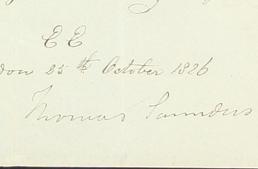 E E
don 25th October 1826
Thomas Saunders